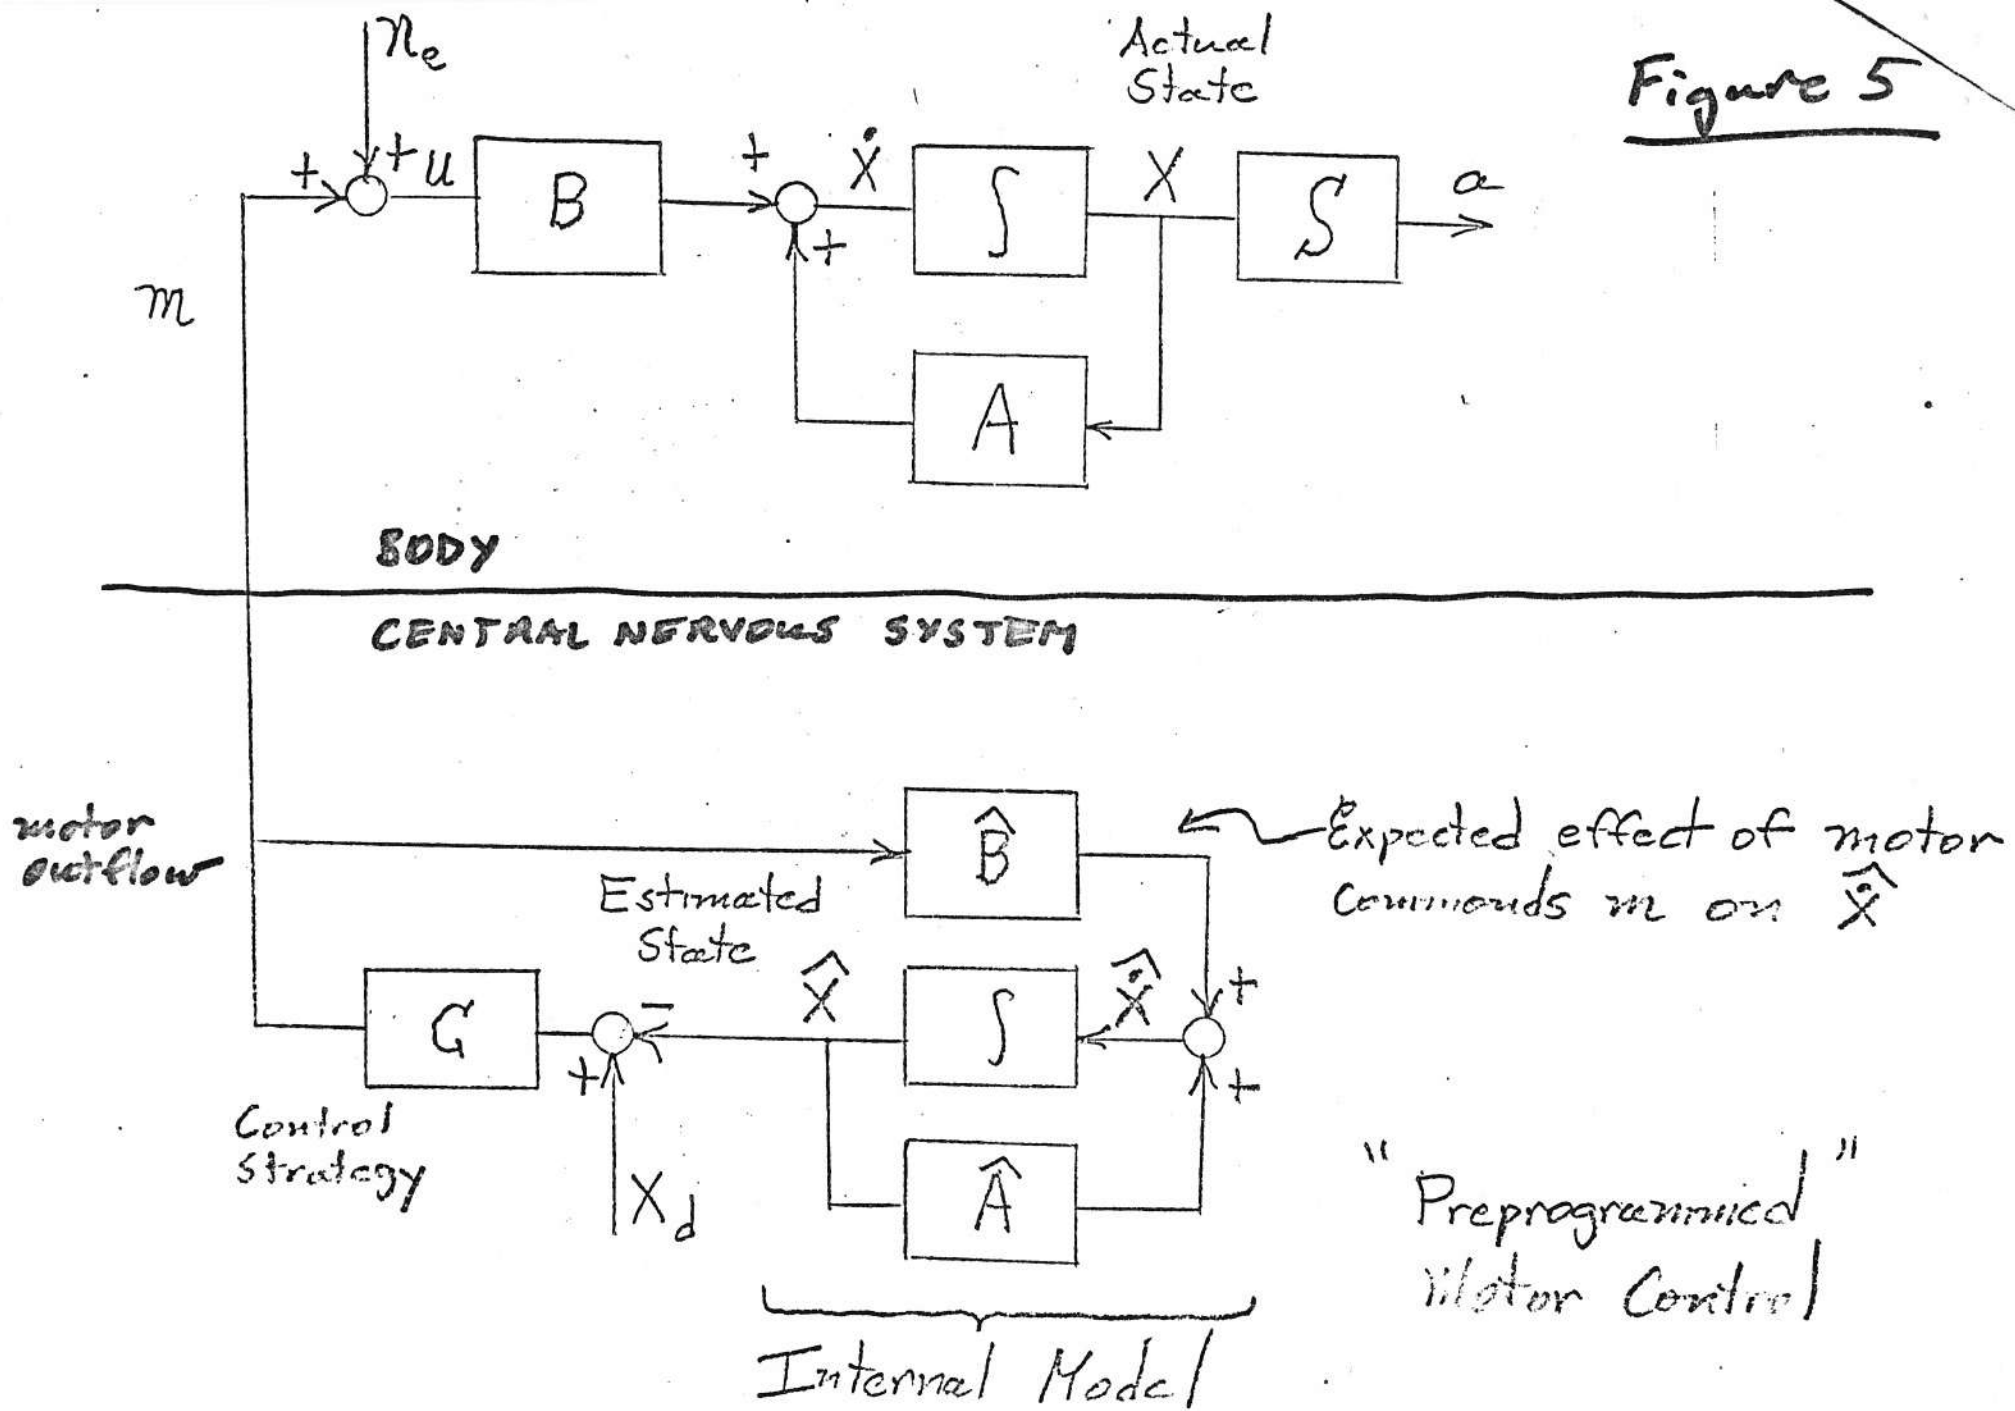 Figure 5
nₑ
Actual
State
+
+
u
B
+
+
Ẋ
∫
X
S
a
m
A
BODY
CENTRAL NERVOUS SYSTEM
motor
outflow
B̂
Expected effect of motor
commands m on Ẋ̂
Estimated
State
G
−
+
X̂
∫
Ẋ̂
+
+
Control
Strategy
X_d
Â
"Preprogrammed"
Motor Control
Internal Model